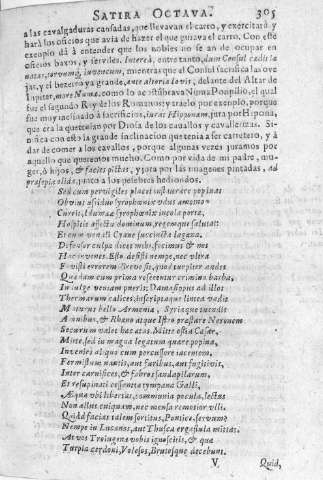 SATIRA OCTAVA. 305
a las cavalgaduras cansadas, que llevavan el carro, y exercitará y
hará los oficios que avia de hazer el que guiava el carro. Con este
exemplo dá à entender que los nobles no se an de ocupar en
oficios baxos, y serviles. Interà, entre tanto, dum Consul cædit la
natas, torvumq; iuvencum, mientras que el Consul sacrifica las ove
jas, y el bezerro ya grande, ante altaria Iovis, delante del Altar de
Iupiter, more Numæ, como lo acostũbrava Numa Pompilio, el qual
fue el segundo Rey de los Romanos: y traelo por exemplo, porque
fue muy inclinado à sacrificios, iurat Hipponam, jura por Hipona,
que era la que tenian por Diosa de los cavallos y cavallerizas. Si-
nifica con esto la grande inclinacion que tenia a ser carretero, y à
dar de comer a los cavallos, porque algunas vezes juramos por
aquello que queremos mucho. Como por vida de mi padre, mu-
ger, ò hijos, & facies pictas, y jura por las imagenes pintadas, ad
præsepia olida, junto a los pesebres hediondos.
Sed cum pervigiles placet instaurare popinas
Obvius assiduo syrophœnix udus amomo
Currit, Idumææ syrophœnix incola portæ,
Hospitis affectu dominum, regemque salutat:
Et cum venali Cyane succincta lagena.
Defensor culpæ dicet mihi, fecimus & nos
Hæc iuvenes. Esto desisti nempe, nec vltra
Fovisti errorem. Breve sit, quod turpiter audes
Quædam cum prima resecentur crimina barba,
Indulge veniam pueris: Damasippus ad illos
Thermarum calices, inscriptaque lintea vadit
Maturus bello Armeniæ, Syriæque tuendis
Amnibus, & Rheno atque Istro præstare Neronem
Securum valet hæc ætas. Mitte ostia Cæsar,
Mitte, sed in magna legatum quære popina,
Invenies aliquo cum percussore iacentem,
Permistum nautis, aut furibus, aut fugitivis,
Inter carnifices, & fabros sandapilarum,
Et resupinati cessantia tympana Galli,
Æqua vbi libertas, communia pocula, lectus
Non alius cuiquam, nec mensa remotior vlli.
Quid facias talem sortitus, Pontice, servum?
Nempe in Lucanos, aut Thusca ergastula mittas.
At vos Troiugenæ vobis ignoscitis, & quæ
Turpia cerdoni, Volesos, Brutosque decebunt.
V. Quid,